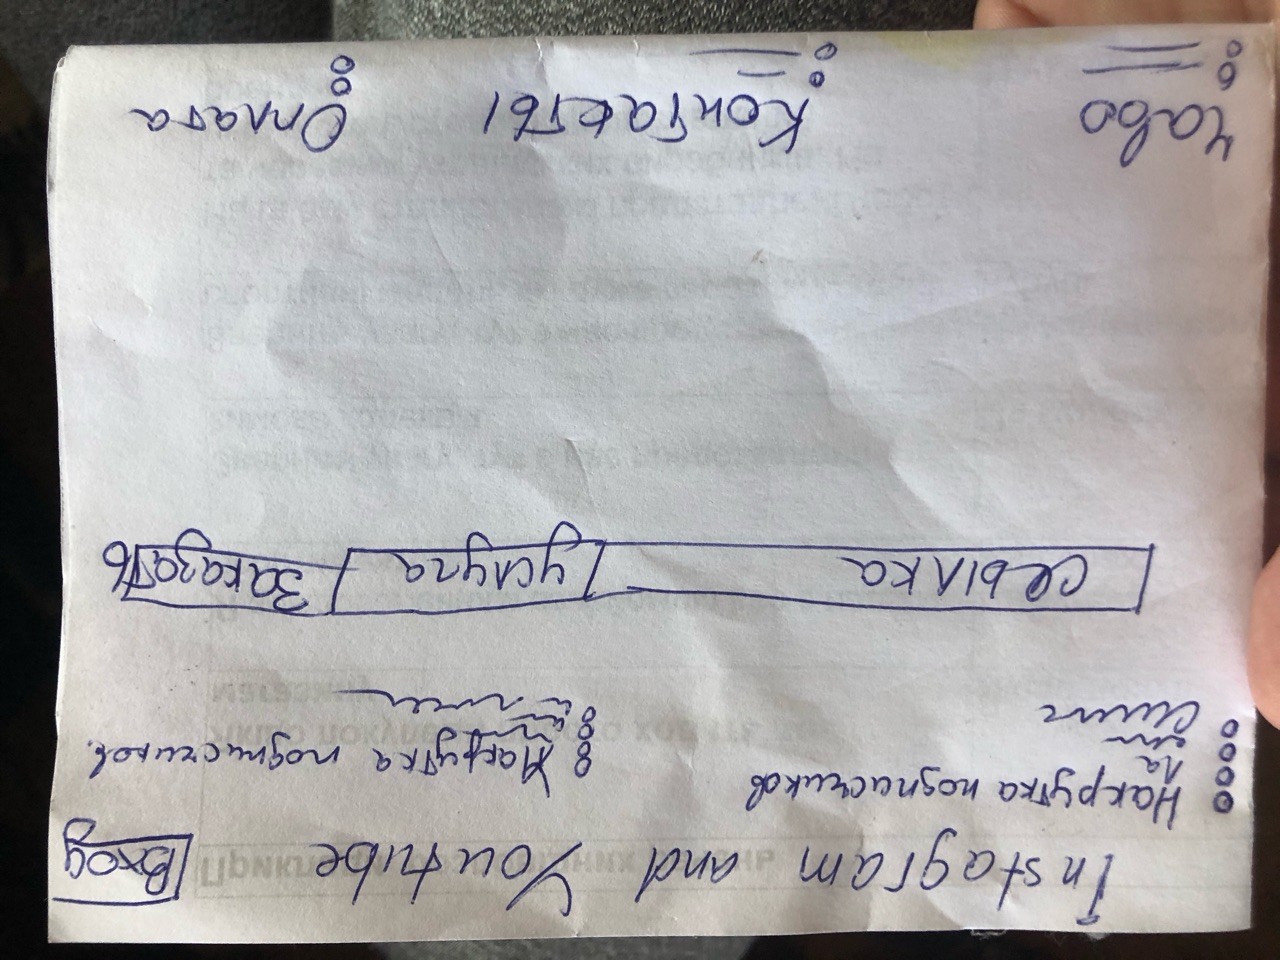 Instagram and Youtube
Вход
Накрутка подписчиков
Ла
Накрутка подписчиков.
ссылка
услуга
Заказать
Чаво
Контакты
Оплата